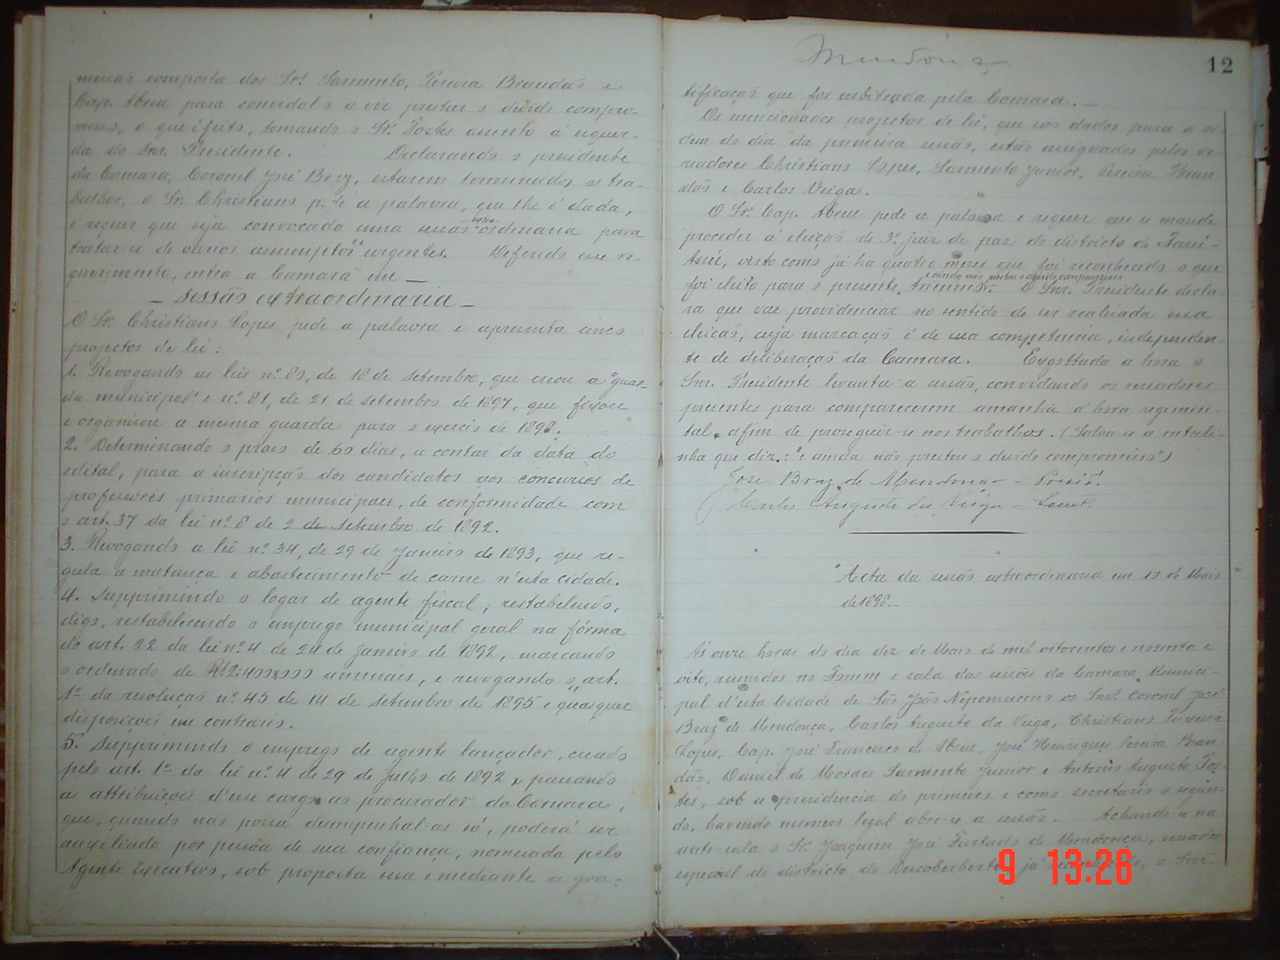 missão composta dos Srs. Sarmento, Pereira Brandão e
Cap. Abreu para convidal-o a vir prestar o devido compro-
misso, o que é feito, tomando o Sr. Fortes assento á esquer-
da do Snr. Presidente. Declarando o presidente
da Camara, Coronel José Braz, estarem terminados os tra-
balhos, o Sr. Christiano pede a palavra, que lhe é dada,
e requer que seja convocada uma sessão extra-ordinaria para
tratar-se de varios assumptos urgentes. Deferido esse re-
querimento, entra a Camara em
— sessão extraordinaria —
O Sr. Christiano Lopes pede a palavra e apresenta cinco
projectos de lei:
1. Revogando as leis nº 80, de 18 de setembro, que creou a "guar-
da municipal" e nº 81, de 21 de setembro de 1897, que fixou
e organisou a mesma guarda para o exercicio de 1898.
2. Determinando o praso de 60 dias, a contar da data do
edital, para a inscripção dos candidatos aos concursos de
professores primarios municipaes, de conformidade com
o art. 37 da lei nº 8 de 2 de setembro de 1892.
3. Revogando a lei nº 34, de 29 de Janeiro de 1893, que re-
gula a matança e abastecimento de carne n'esta cidade.
4. Supprimindo o logar de agente fiscal, restabelendo,
digo, restabelecendo o emprego municipal geral na fórma
do art. 22 da lei nº 4 de 20 de Janeiro de 1892, marcando
o ordenado de annuaes, e revogando o art.
1º da resolução nº 45 de 14 de setembro de 1895 e quaesquer
disposições em contrario.
5. Supprimindo o emprego de agente lançador, creado
pelo art. 1º da lei nº 4 de 29 de julho de 1892, passando
as attribuições d'esse cargo ao procurador da Camara,
que, quando não possa desempenhal-as só, poderá ser
auxiliado por pessôa de sua confiança, nomeada pelo
Agente Executivo, sob proposta sua e mediante a gra-
Mendonça
12
tificação que for arbitrada pela Camara.
Os mencionados projectos de lei, que são dados para a or-
dem do dia da primeira sessão, estão assignados pelos ve-
readores Christiano Lopes, Sarmento Junior, Pereira Bran-
dão e Carlos Veiga.
O Sr. Cap. Abreu pede a palavra e requer que se mande
proceder á eleição de 3º juiz de paz do districto de
visto como já ha quatro mezes que foi reconhecido o que
e ainda não prestou o devido compromisso
foi eleito para o presente triennio. O Snr. Presidente decla-
ra que vae providenciar no sentido de ser realisada essa
eleição, cuja marcação é de sua competencia, independen-
te de deliberação da Camara. Exgottada a hora o
Snr. Presidente levanta a sessão, convidando os vereadores
presentes para comparecerem amanhã á hora regimen-
tal, afim de proseguir-se nos trabalhos. (Salva-se a entreli-
nha que diz: "e ainda não prestou o devido compromisso")
José Braz de Mendonça — Presid.
Carlos Augusto da Veiga — Secret.
Acta da sessão extraordinaria em 10 de Maio
de 1898.
Ás onze horas do dia dez de Maio de mil oitocentos e noventa e
oito, reunidos no Forum e sala das sessões da Camara Munici-
pal d'esta Cidade de São João Nepomuceno os Snrs. Coronel José
Braz de Mendonça, Carlos Augusto da Veiga, Christiano Teixeira
Lopes, Cap. José Francisco de Abreu, José Henriques Pereira Bran-
dão, Daniel de Moraes Sarmento Junior e Antonio Augusto For-
tes, sob a presidencia do primeiro e como secretario o segun-
do, havendo numero legal abre-se a sessão. Achando-se na
ante-sala o Sr. Joaquim José Furtado de Mendonça, vereador
especial do districto do Descoberto, já o Snr.
9 13:26